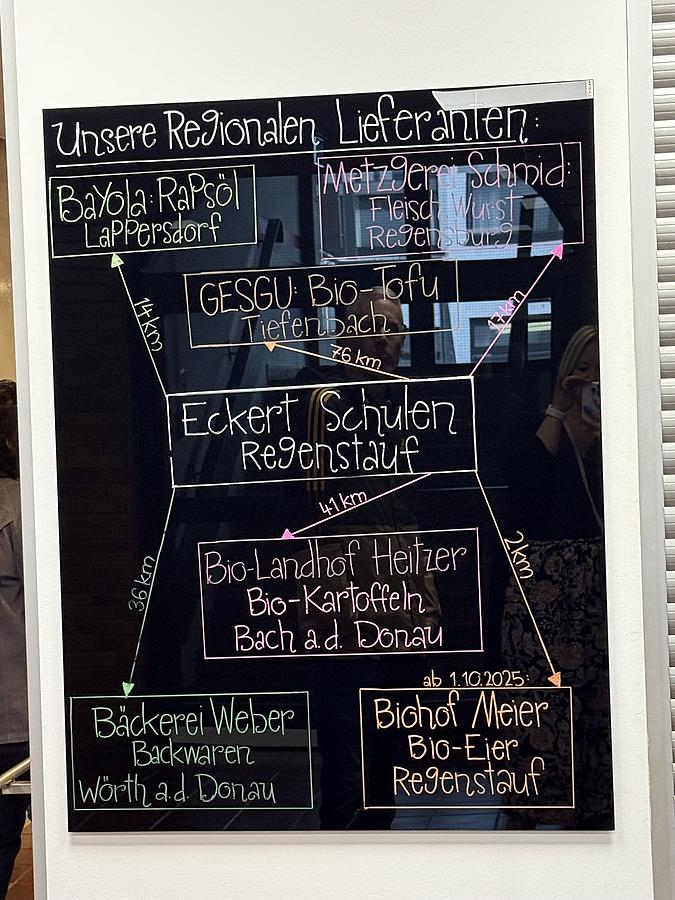 Unsere Regionalen Lieferanten:
BaYola: Rapsöl
Lappersdorf
Metzgerei Schmid:
Fleisch Wurst
Regensburg
14 km
GESGU: Bio-Tofu
Tiefenbach
17 km
76 km
Eckert Schulen
Regenstauf
41 km
36 km
2 km
Bio-Landhof Heitzer
Bio-Kartoffeln
Bach a.d. Donau
Bäckerei Weber
Backwaren
Wörth a.d. Donau
ab 1.10.2025:
Biohof Meier
Bio-Eier
Regenstauf